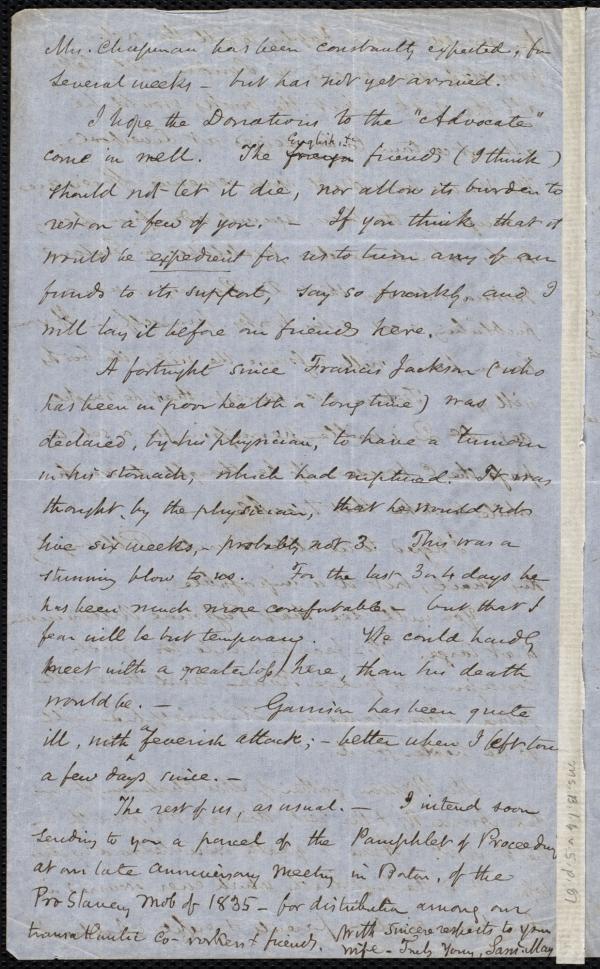 Mrs. Chapman has been constantly expected, for
several weeks - but has not yet arrived.
I hope the Donations to the "Advocate"
come in well. The foreign English, &c friends (I think)
should not let it die, nor allow its burden to
rest on a few of you. - If you think that it
would be expedient for us to turn any of our
funds to its support, say so frankly, and I
will lay it before our friends here.
A fortnight since Francis Jackson (who
has been in poor health a long time) was
declared, by his physician, to have a tumour
in his stomach, which had ruptured. It was
thought, by the physician, that he would not
live six weeks, - probably not 3. This was a
stunning blow to us. For the last 3 or 4 days he
has been much more comfortable - but that I
fear will be but temporary. We could hardly
meet with a greater loss here, than his death
would be. - Garrison has been quite
ill, with a feverish attack; - better when I left town
a few days since. -
The rest of us, as usual. - I intend soon
sending to you a parcel of the Pamphlet of Proceedings
at our late Anniversary Meeting in Boston, of the
Pro Slavery Mob of 1835 - for distribution among our
transatlantic co-workers & friends. With sincere respects to your
wife - Truly Yours, Saml. May
Ms.B.1.6 v.5, p.87